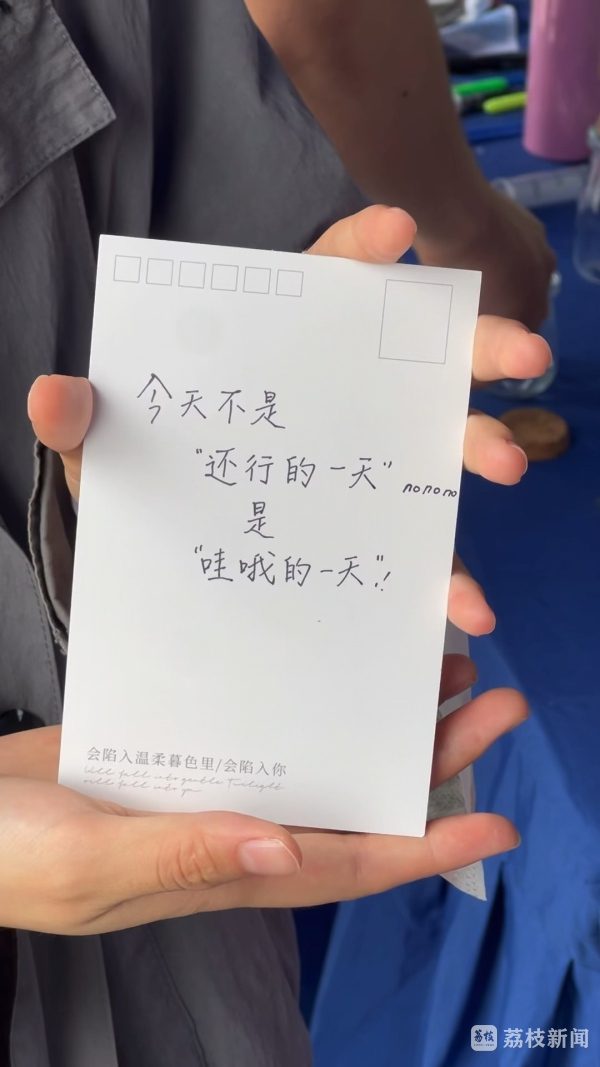 今天不是
"还行的一天" nonono
是
"哇哦的一天"!!
会陷入温柔暮色里/会陷入你
will fall into gentle Twilight
will fall into you
荔枝
荔枝新闻